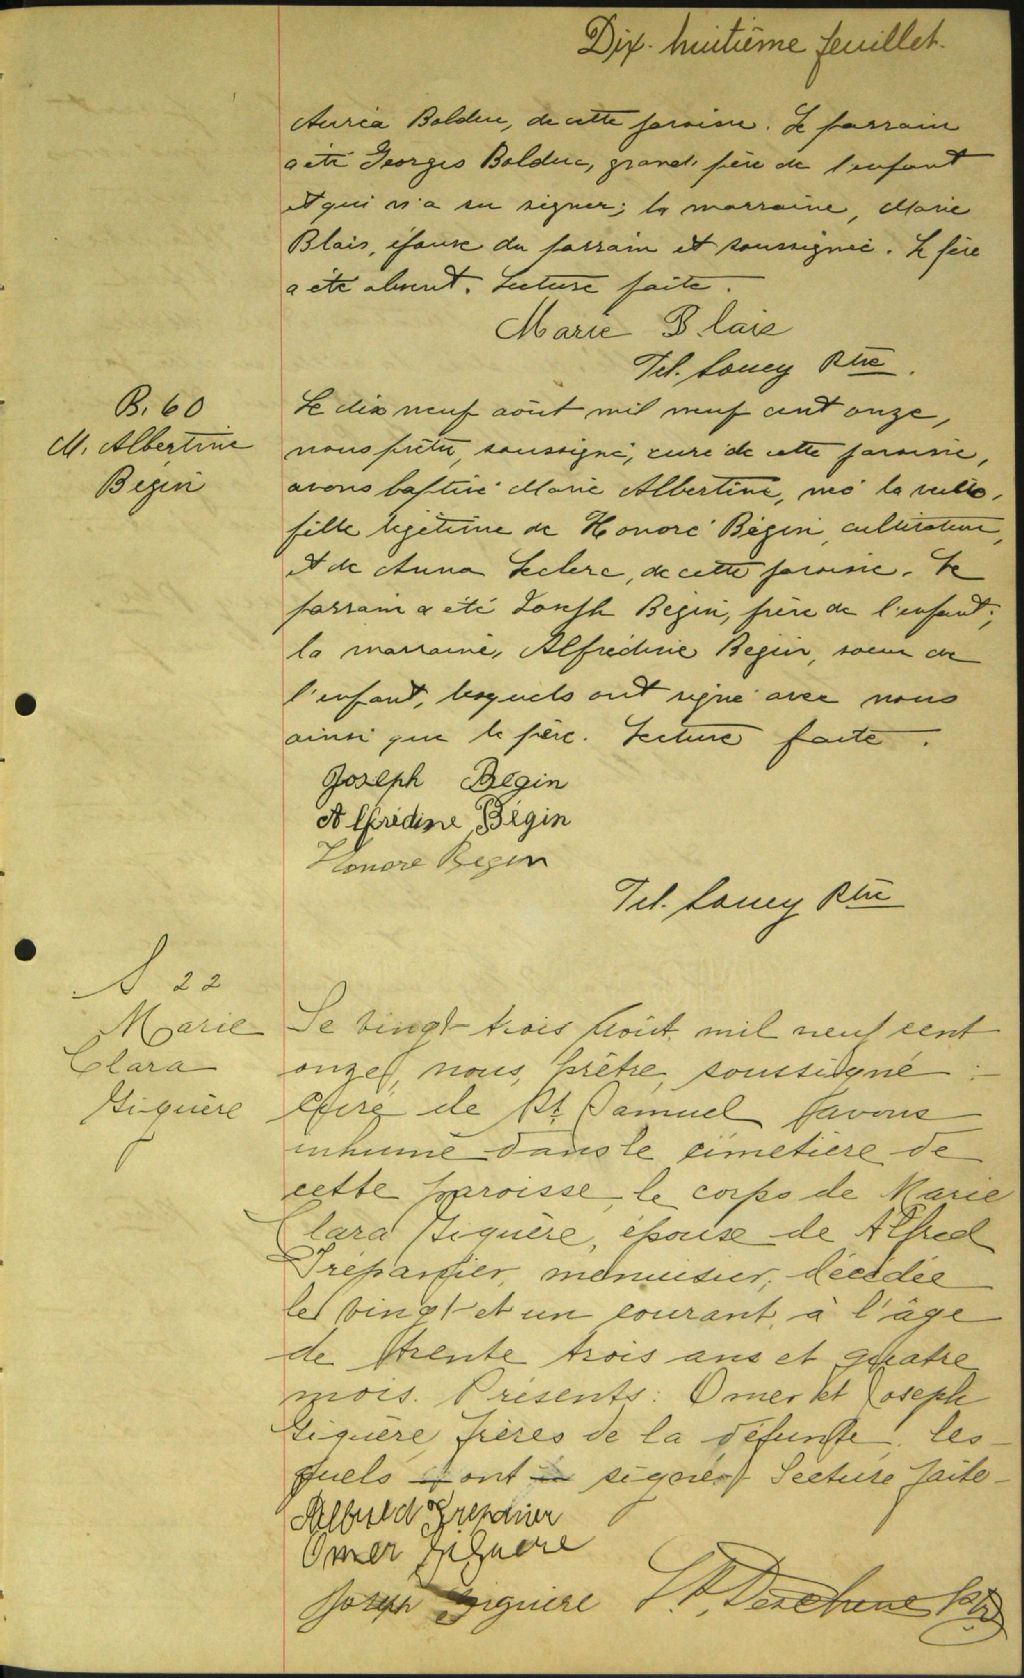 Dix-huitième feuillet.
Aurea Bolduc, de cette paroisse. Le parrain
a été Georges Bolduc, grand-père de l'enfant
et qui n'a su signer; la marraine, Marie
Blais, épouse du parrain et soussignée. Le père
a été absent. Lecture faite.
Marie Blais
Tel. Soucy Ptre.
B. 60
M. Albertine
Bégin
Le dix neuf août mil neuf cent onze,
nous prêtre, soussigné, curé de cette paroisse,
avons baptisé Marie Albertine, née la veille,
fille légitime de Honoré Bégin, cultivateur,
et de Anna Leclerc, de cette paroisse. Le
parrain a été Joseph Bégin, frère de l'enfant;
la marraine, Alfrédine Bégin, soeur de
l'enfant, lesquels ont signé avec nous
ainsi que le père. Lecture faite.
Joseph Bégin
Alfrédine Bégin
Honore Begin
Tel. Soucy Ptre
S 22
Marie
Clara
Giguère
Le vingt-trois Août mil neuf cent
onze, nous, prêtre, soussigné :-
curé de St. Samuel avons
inhumé dans le cimetière de
cette paroisse, le corps de Marie
Clara Giguère, épouse de Alfred
Trépanier, menuisier, décédée
le vingt et un courant, à l'âge
de trente trois ans et quatre
mois. Présents: Omer et Joseph
Giguère, frères de la défunte, les-
quels ont signé. Lecture faite-
Alfred Trepanier
Omer Giguere
Joseph Giguière Deschene Ptre